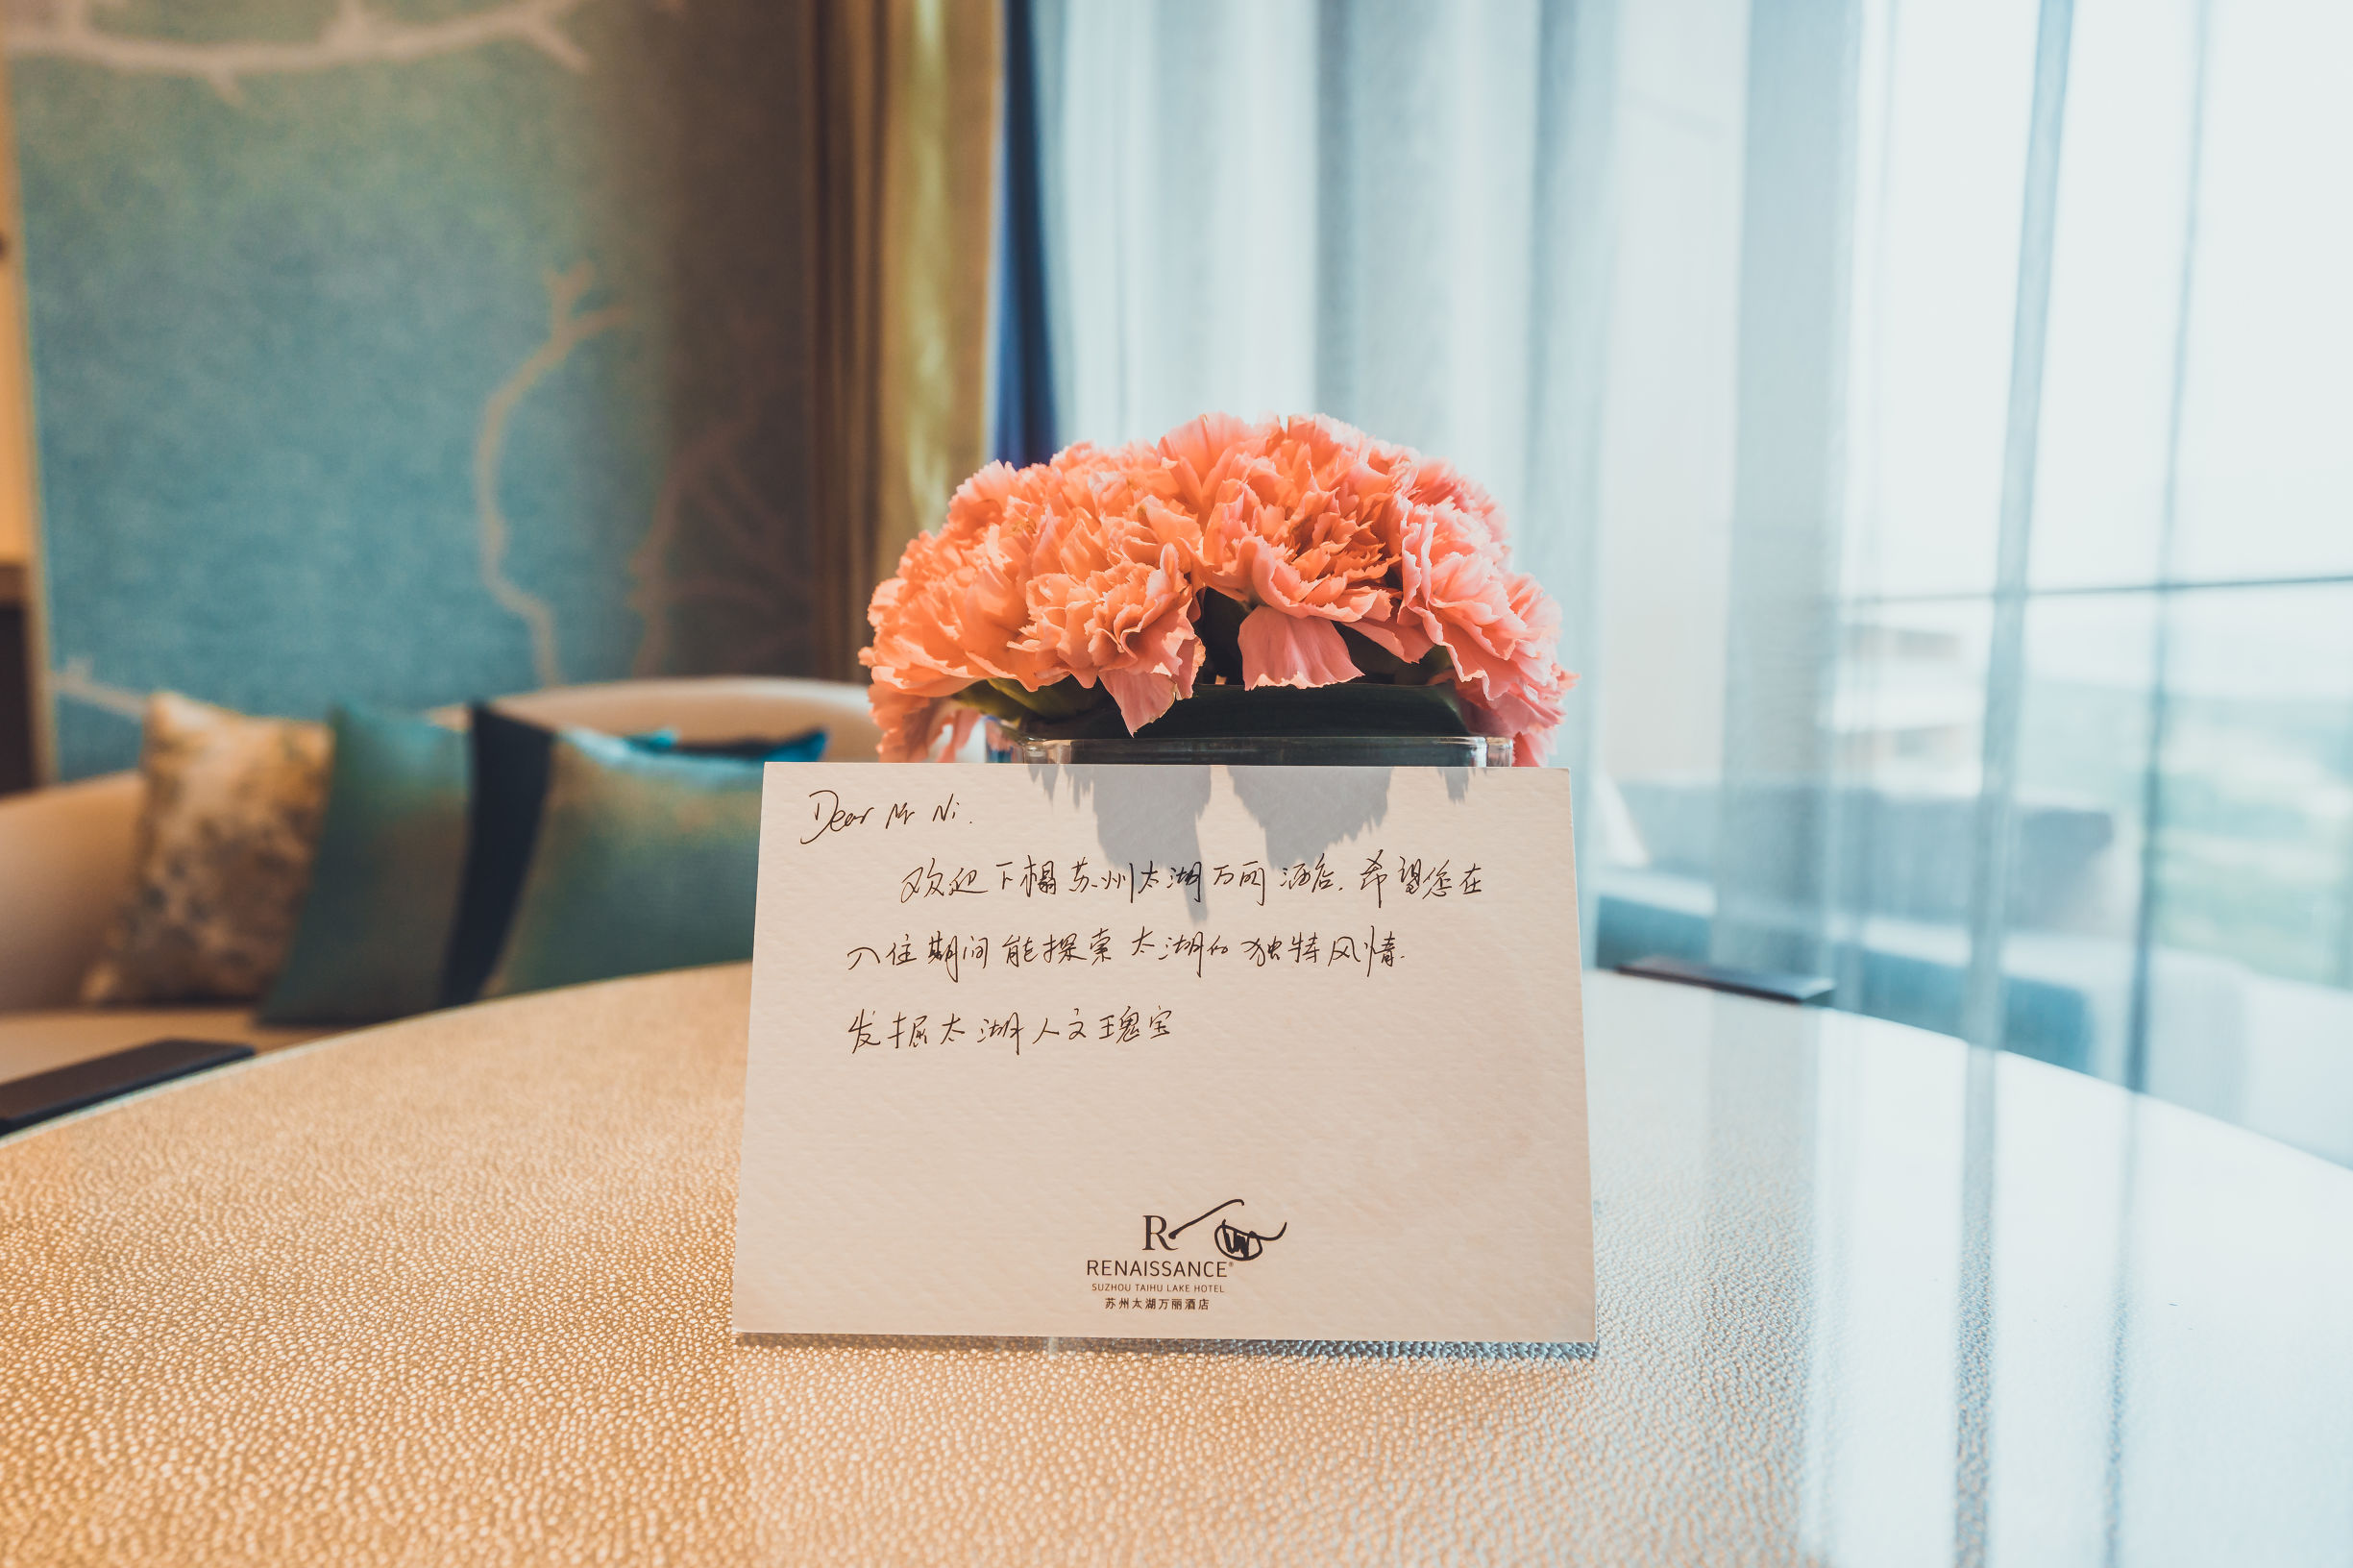 Dear Mr Ni.
欢迎下榻苏州太湖万丽酒店.希望您在
入住期间能探索太湖的独特风情.
发掘太湖人文瑰宝
R
RENAISSANCE®
SUZHOU TAIHU LAKE HOTEL
苏州太湖万丽酒店